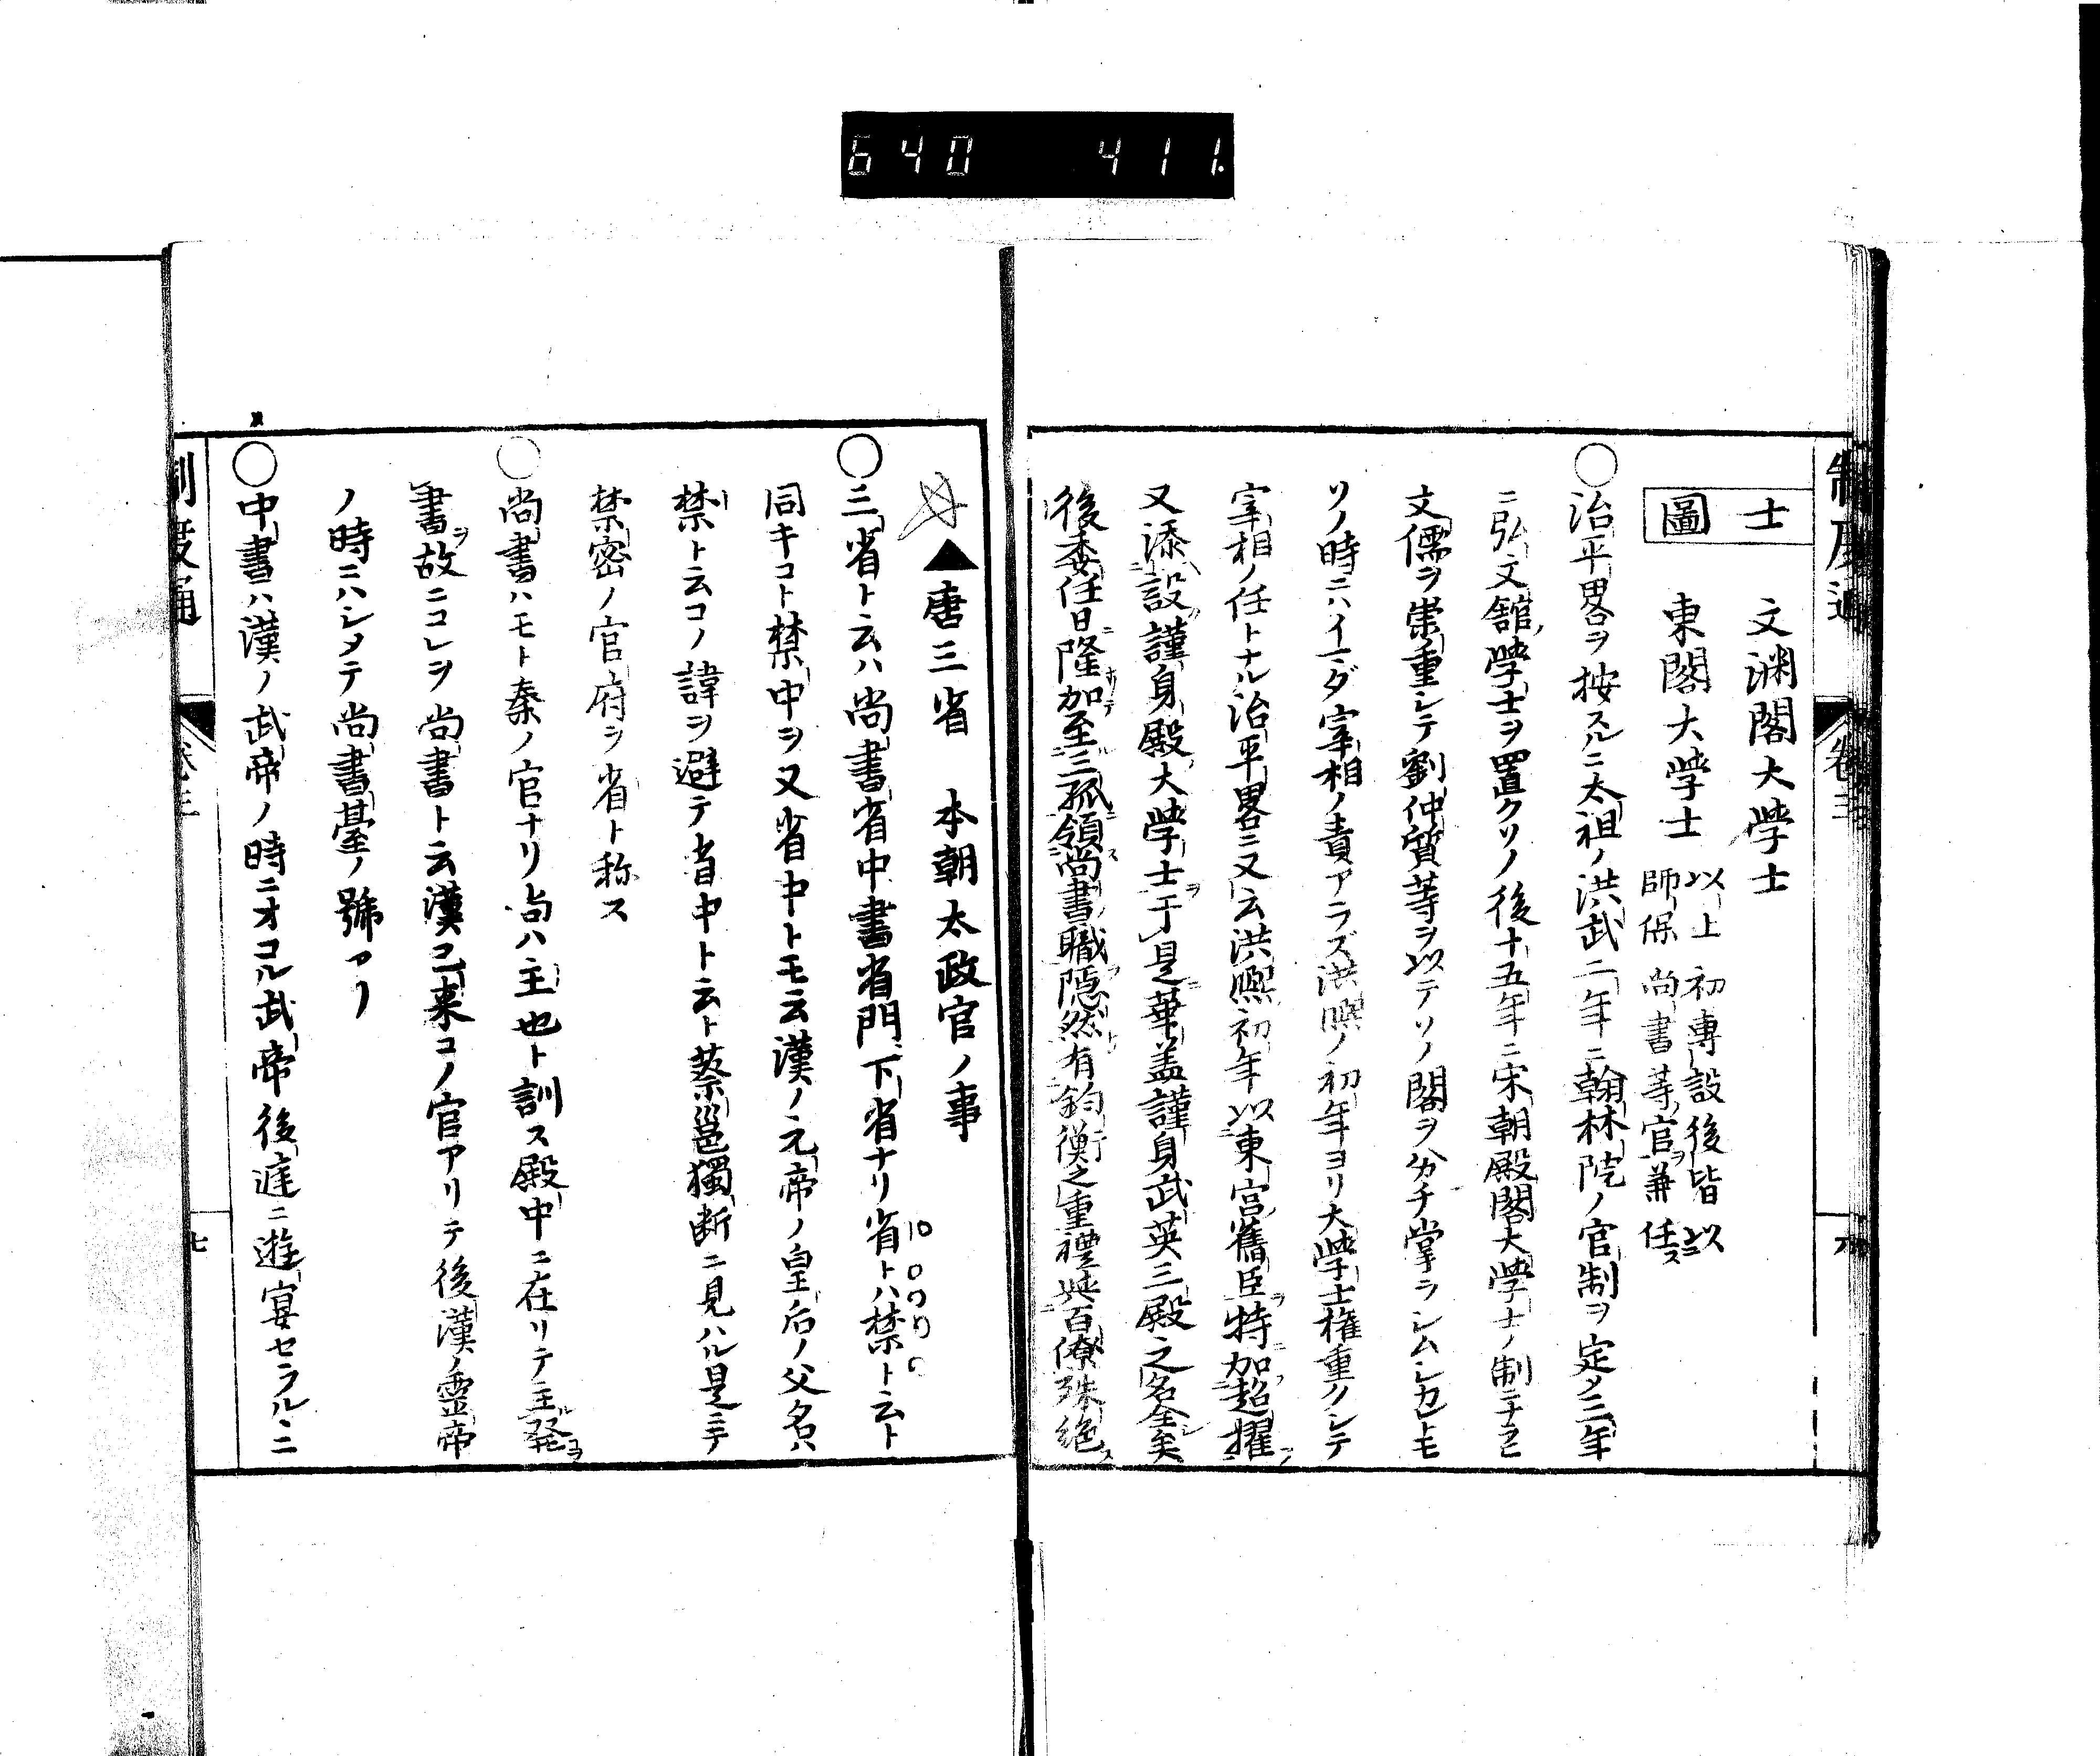 640 411.
制度通 卷三 六
士 文渊閣大学士
圖 東閣大学士 以上初専設後皆以
師保尚書等官ヲ兼任ス
○治平畧ヲ按スルニ太祖ノ洪武二年ニ翰林院ノ官制ヲ定メ三年
ニ弘文舘学士ヲ置クソノ後十五年ニ宋朝殿閣大学士ノ制ニナラヒ
文儒ヲ崇重シテ劉仲質等ヲ以テソノ閣ヲ分チ掌ラシムシカレトモ
ソノ時ニハイマダ宰相ノ責アラズ洪熙ノ初年ヨリ大学士権重クシテ
宰相ノ任トナル治平畧ニ又云洪熙初年以東宮舊臣特加超擢
又添設謹身殿大学士于是華盖謹身武英三殿之名全矣
後委任日隆加至三孤領尚書職隠然有鈞衡之重禮與百僚殊絶
▲唐三省 本朝太政官ノ事
○三省ト云ハ尚書省中書省門下省ナリ省トハ禁ト云ト
同キコト禁中ヲ又省中トモ云漢ノ元帝ノ皇后ノ父名ハ
禁ト云コノ諱ヲ避テ省中ト云ト蔡邕獨断ニ見ハル是ニテ
禁密ノ官府ヲ省ト称ス
○尚書ハモト秦ノ官ナリ尚ハ主也ト訓ス殿中ニ在リテ主發
書故ニコレヲ尚書ト云漢已来コノ官アリテ後漢ノ霊帝
ノ時ニハシメテ尚書臺ノ號アリ
○中書ハ漢ノ武帝ノ時ニオコル武帝後庭ニ遊宴セラルルニ
制度通 卷三 七